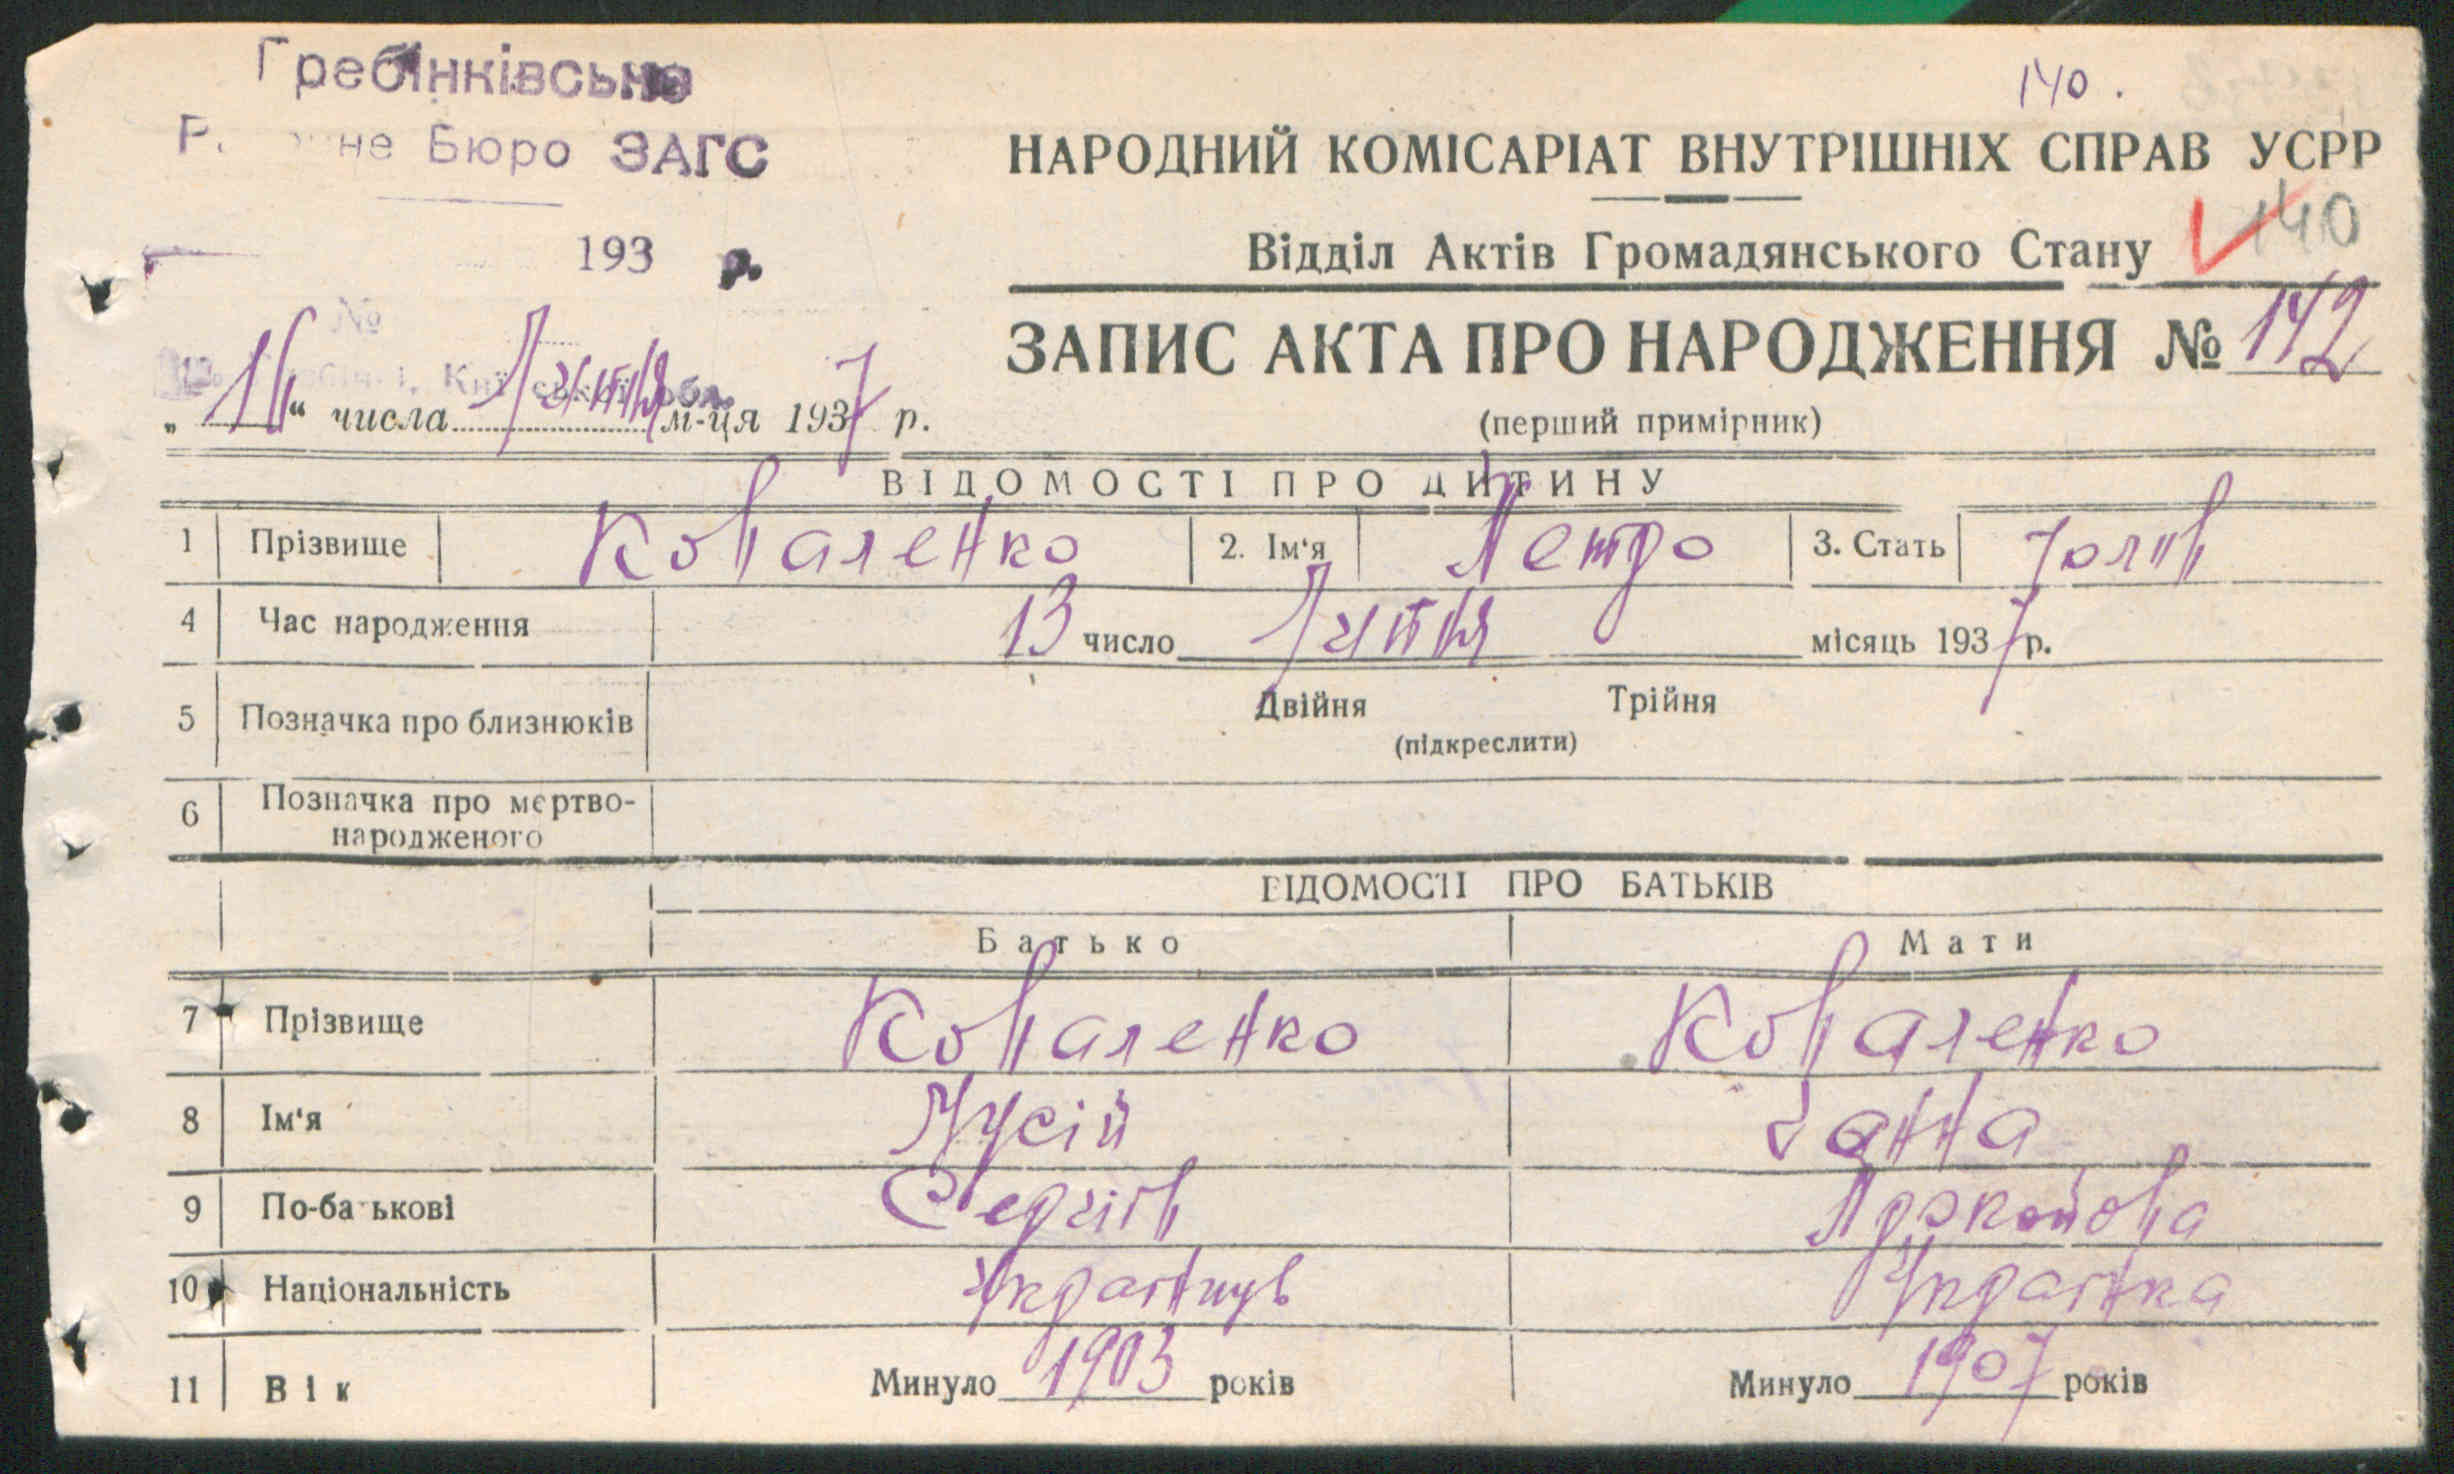 Гребінківське
не Бюро ЗАГС
140.
НАРОДНИЙ КОМІСАРІАТ ВНУТРІШНІХ СПРАВ УСРР
140
Відділ Актів Громадянського Стану
193 р.
№
ЗАПИС АКТА ПРО НАРОДЖЕННЯ № 142
„16“ числа Липня м-ця 1937 р.
(перший примірник)
ВІДОМОСТІ ПРО ДИТИНУ
1 Прізвище Коваленко 2. Ім'я Петро 3. Стать чолов
4 Час народження 13 число Липня місяць 1937 р.
5 Позначка про близнюків Двійня Трійня
(підкреслити)
6 Позначка про мертво-
народженого
ВІДОМОСТІ ПРО БАТЬКІВ
Батько Мати
7 Прізвище Коваленко Коваленко
8 Ім'я Мусій Ганна
9 По-батькові Сергіїв Прокопова
10 Національність Українець Українка
11 Вік Минуло 1903 років Минуло 1907 років